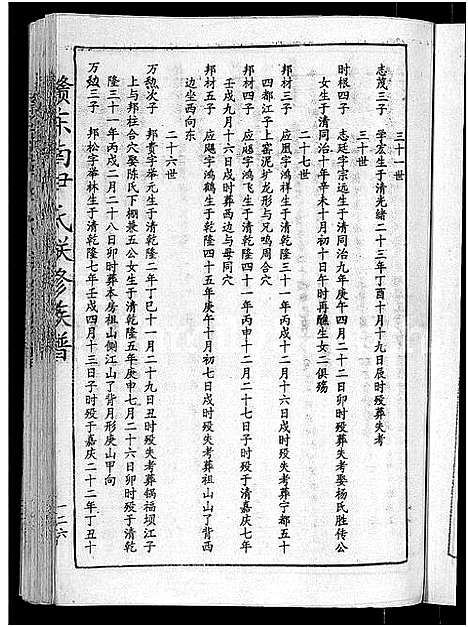 三十一世
志茂三子　学宏生于清光绪二十三年丁酉十月十九日辰时殁葬失考
三十世
时根四子　志廷字宗远生于清同治九年庚午四月二十二日卯时殁葬失考娶杨氏胜传公
女生于清同治十年辛未十月初十日午时再醮生女二俱殇
二十七世
邦材三子　应凰字鸿祥生于清乾隆三十一年丙戌十二月十六日戌时殁失考葬宁都五十
四都江子上窑泥圹龙形与兄鸣周合穴
邦材四子　应飏字鸿飞生于清乾隆四十一年丙申十二月二十七日子时殁于清嘉庆七年
壬戌九月十六日戌时葬西边与母同穴
邦材五子　应飓字鸿鹤生于乾隆四十五年庚午十月初七日戌时殁失考葬祖山山了背西
边坐西向东
二十六世
万勉次子　邦贵字华元生于清乾隆二年丁巳十一月二十九日丑时殁失考葬锅福坝江子
上与邦柱合穴娶陈氏下棚兼五公女生于清乾隆五年庚申七月二十六日卯时殁于清乾
隆三十一年丙戌二月二十八日卯时葬本房祖山侧江山了背月形庚山甲向
万勉三子　邦松字举林生于清乾隆七年壬戌四月十三日子时殁于嘉庆二十二年丁丑十
赣东南尹氏联修族谱
一二六